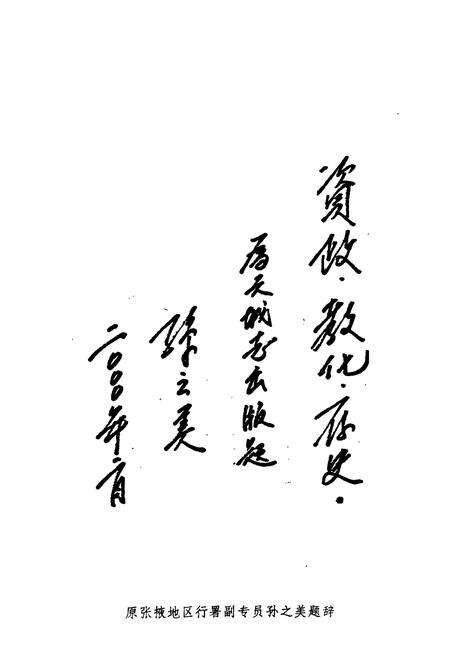 資政·教化·存史·
为天城志出版题
孫之美
二〇〇〇年二月
原张掖地区行署副专员孙之美题辞